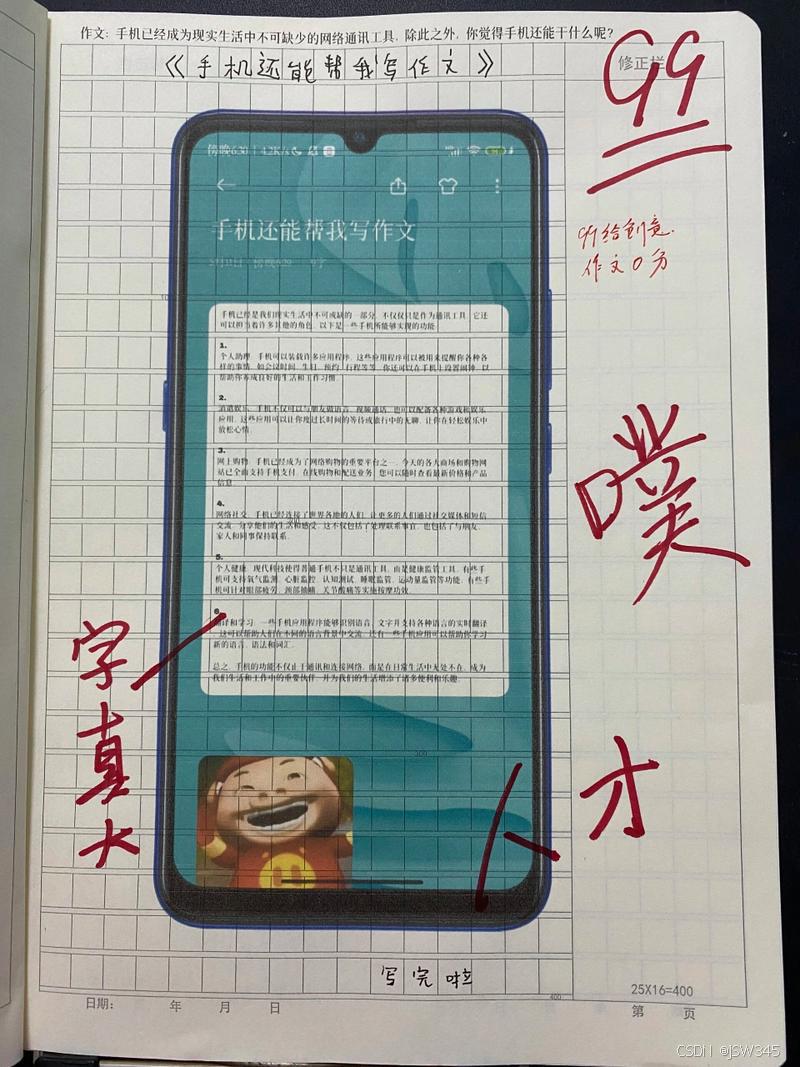 作文: 手机已经成为现实生活中不可缺少的网络通讯工具, 除此之外, 你觉得手机还能干什么呢?
《手机还能帮我写作文》
修正栏
99
99给创意.
作文0分
傍晚6:30 | 4.2K/s
手机还能帮我写作文
手机已经是我们现实生活中不可或缺的一部分, 不仅仅只是作为通讯工具, 它还
可以担当着许多其他的角色. 以下是一些手机所能够实现的功能:
1.
个人助理: 手机可以装载许多应用程序, 这些应用程序可以被用来提醒你各种各
样的事情, 如会议时间, 生日, 预约, 行程等等, 你还可以在手机上设置闹钟, 以
帮助你养成良好的生活和工作习惯.
2.
消遣娱乐: 手机不仅可以与朋友做语音, 视频通话, 也可以配备各种游戏和娱乐
应用, 这些应用可以让你度过长时间的等待或旅行中的无聊, 让你在轻松娱乐中
放松心情.
3.
网上购物: 手机已经成为了网络购物的重要平台之一, 今天的各大商场和购物网
站已全面支持手机支付, 在线购物和配送业务, 您可以随时查看最新价格和产品
信息.
4.
网络社交: 手机已经连接了世界各地的人们, 让更多的人们通过社交媒体和短信
交流, 分享他们的生活和感受, 这不仅包括了处理联系事宜, 也包括了与朋友,
家人和同事保持联系.
5.
个人健康: 现代科技使得普通手机不只是通讯工具, 而是健康监管工具, 有些手
机可支持氧气监测, 心脏监控, 认知测试, 睡眠监管, 运动量监管等功能, 有些手
机可针对眼部疲劳, 颈部抽痛, 关节酸痛等实施按摩功效.
6.
翻译和学习: 一些手机应用程序能够识别语音, 文字并支持各种语言的实时翻译
, 这可以帮助人们在不同的语言背景中交流, 还有一些手机应用可以帮助你学习
新的语言, 语法和词汇.
总之, 手机的功能不仅止于通讯和连接网络, 而是在日常生活中无处不在, 成为
我们生活和工作中的重要伙伴, 并为我们的生活增添了诸多便利和乐趣.
噗
字真大
人才
300
写完啦
400
25X16=400
日期: 年 月 日
第 页
CSDN @JSW345